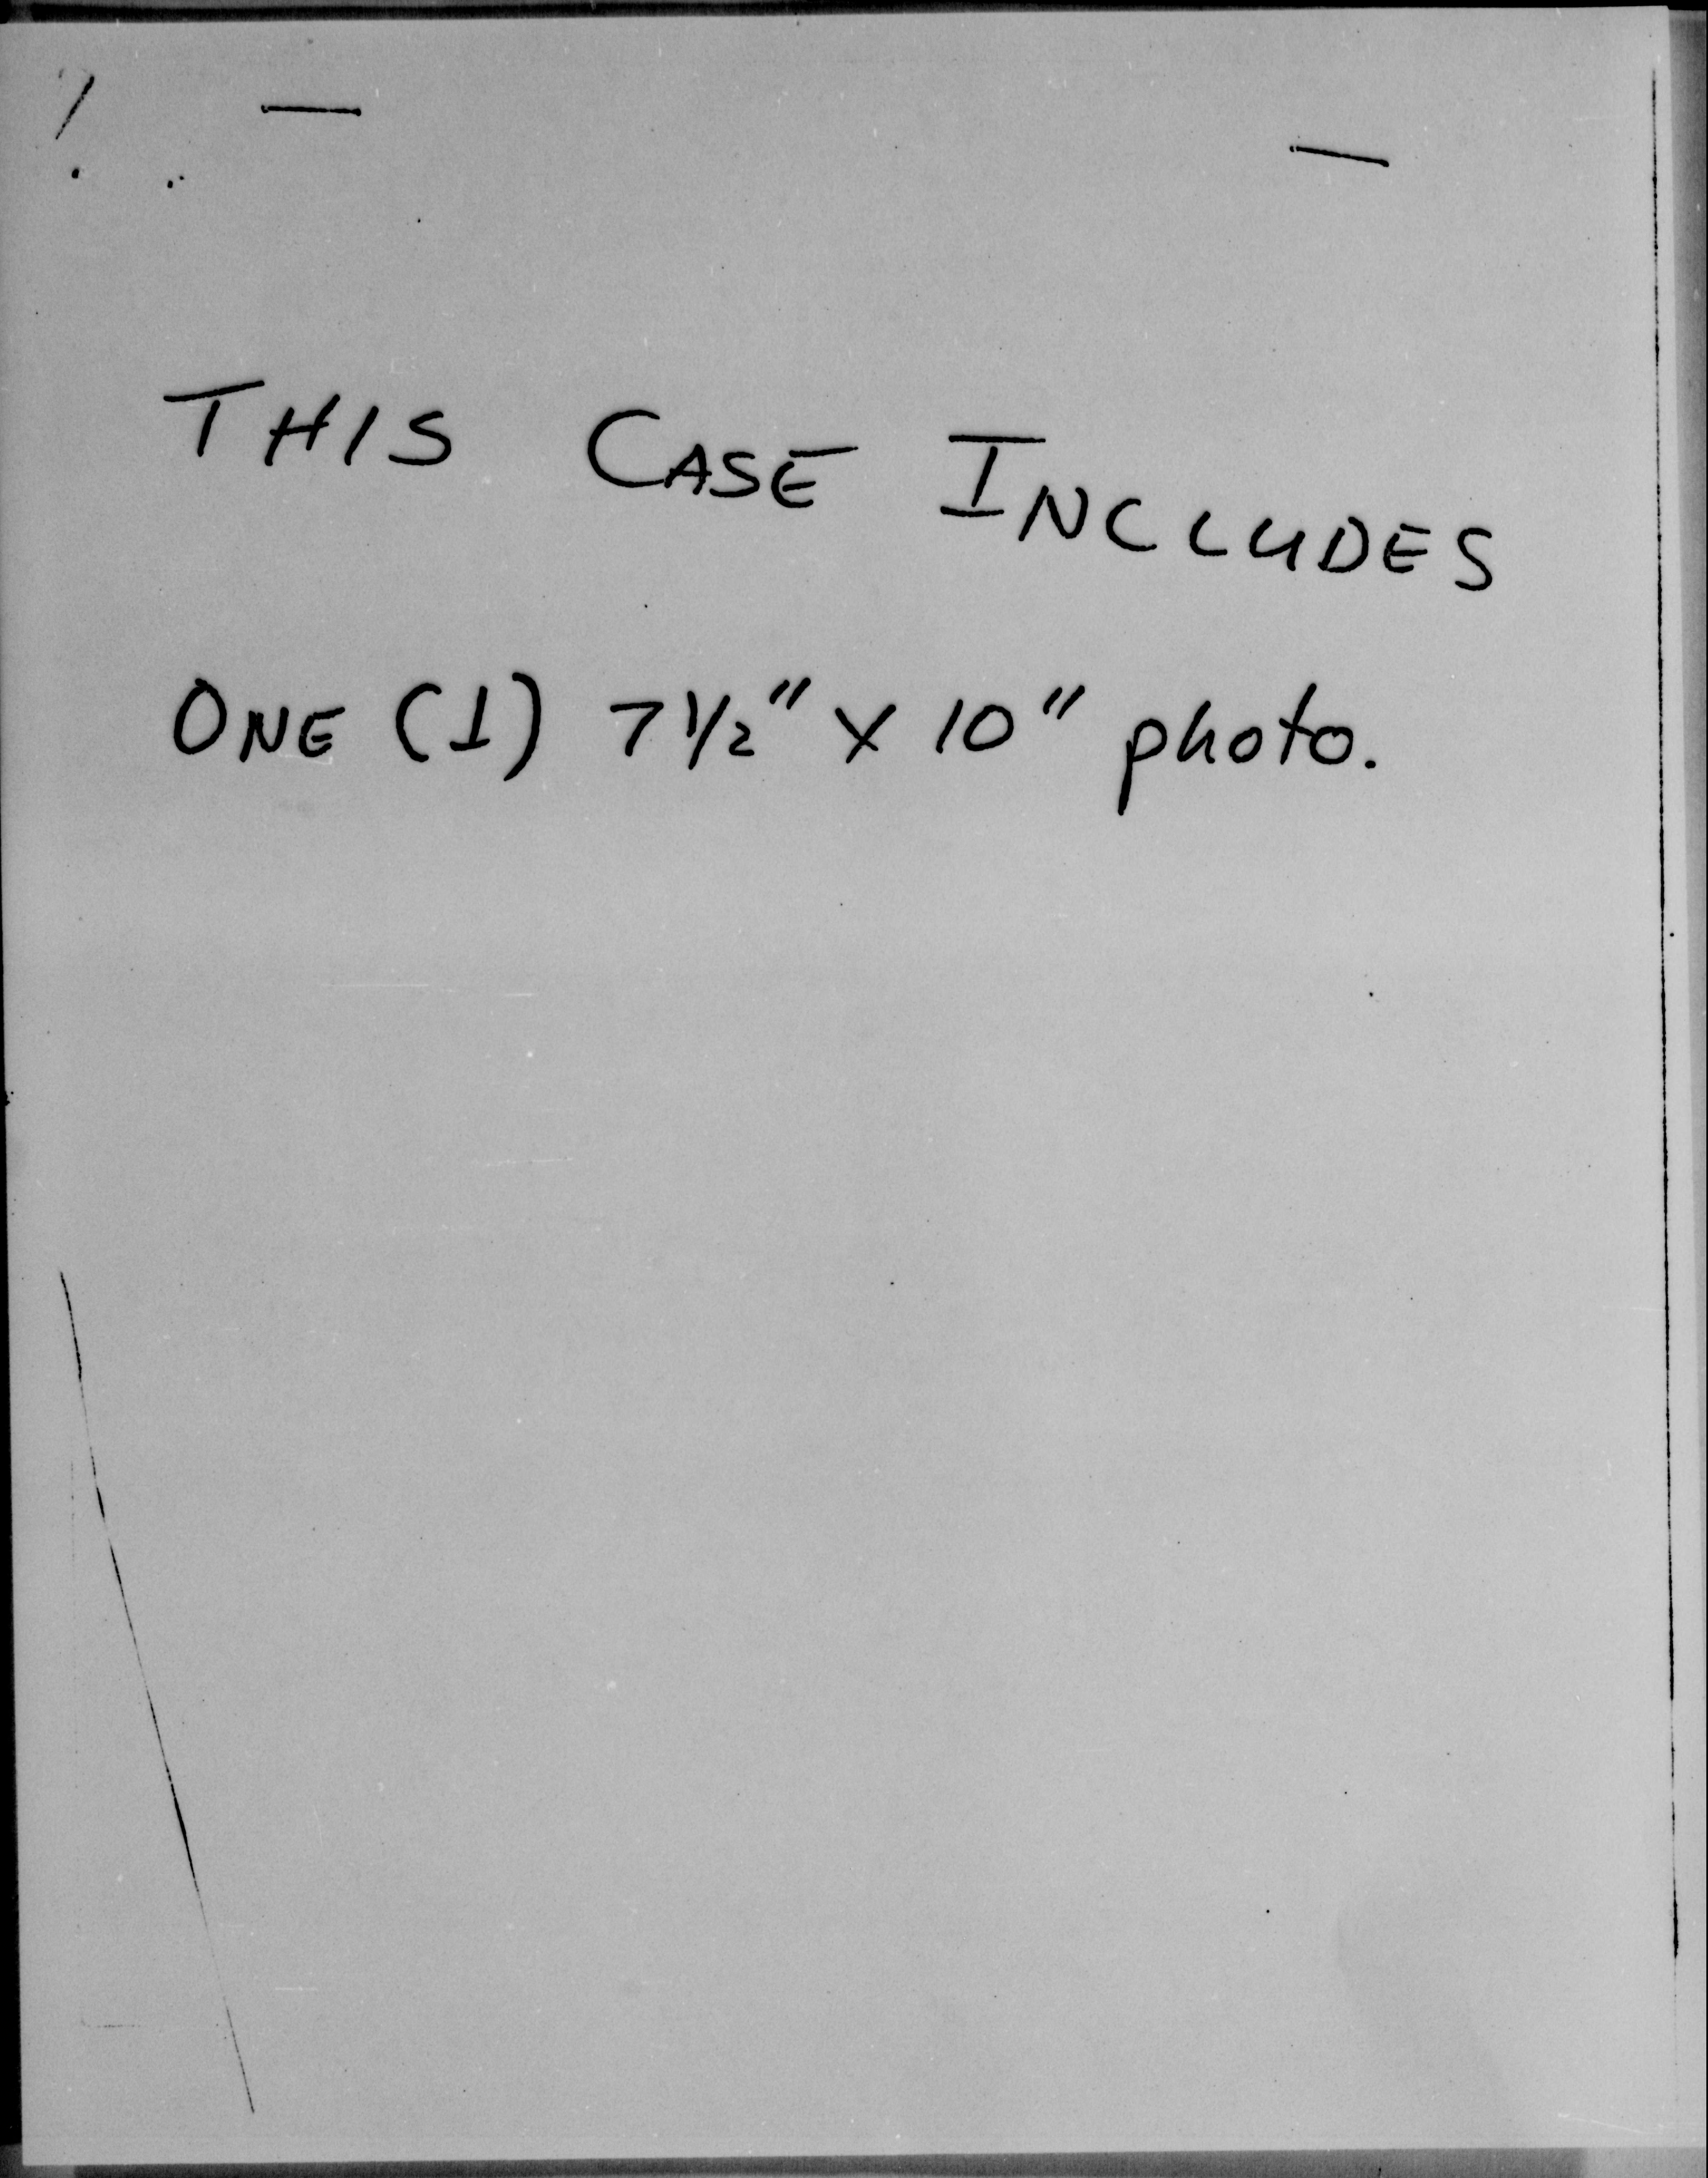 THIS CASE INCLUDES
ONE (1) 7 1/2" X 10" photo.